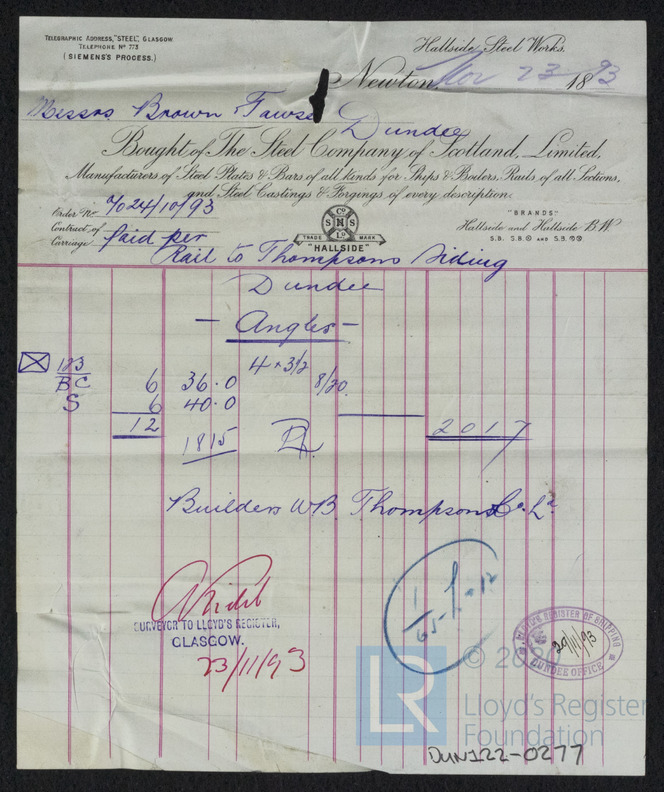 TELEGRAPHIC ADDRESS, "STEEL", GLASGOW.
TELEPHONE No 773
(SIEMENS'S PROCESS.)
Hallside Steel Works.
Newton, Nov 23 1893
Messrs Brown & Fawse
Dundee
Bought of The Steel Company of Scotland, Limited,
Manufacturers of Steel Plates & Bars of all kinds for Ships & Boilers, Rails of all Sections,
and Steel Castings & Forgings of every description.
Order No 7024/10/93
Contract of
Carriage Paid per
Rail to Thompsons Siding
Dundee
Co
S H S
Ld
TRADE MARK
"HALLSIDE"
"BRANDS"
Hallside and Hallside B.W
S.B. S.B. AND S.B.
- Angles -
4 x 3½
123
BC 6 36.0 8/20
S 6 40.0
12 2017
1815
Builders WB Thompson & Co Ld
SURVEYOR TO LLOYD'S REGISTER,
GLASGOW.
23/11/93
LLOYD'S REGISTER OF SHIPPING
29/11/93
DUNDEE OFFICE
LR
Lloyd's Register
Foundation
DUN122-0277